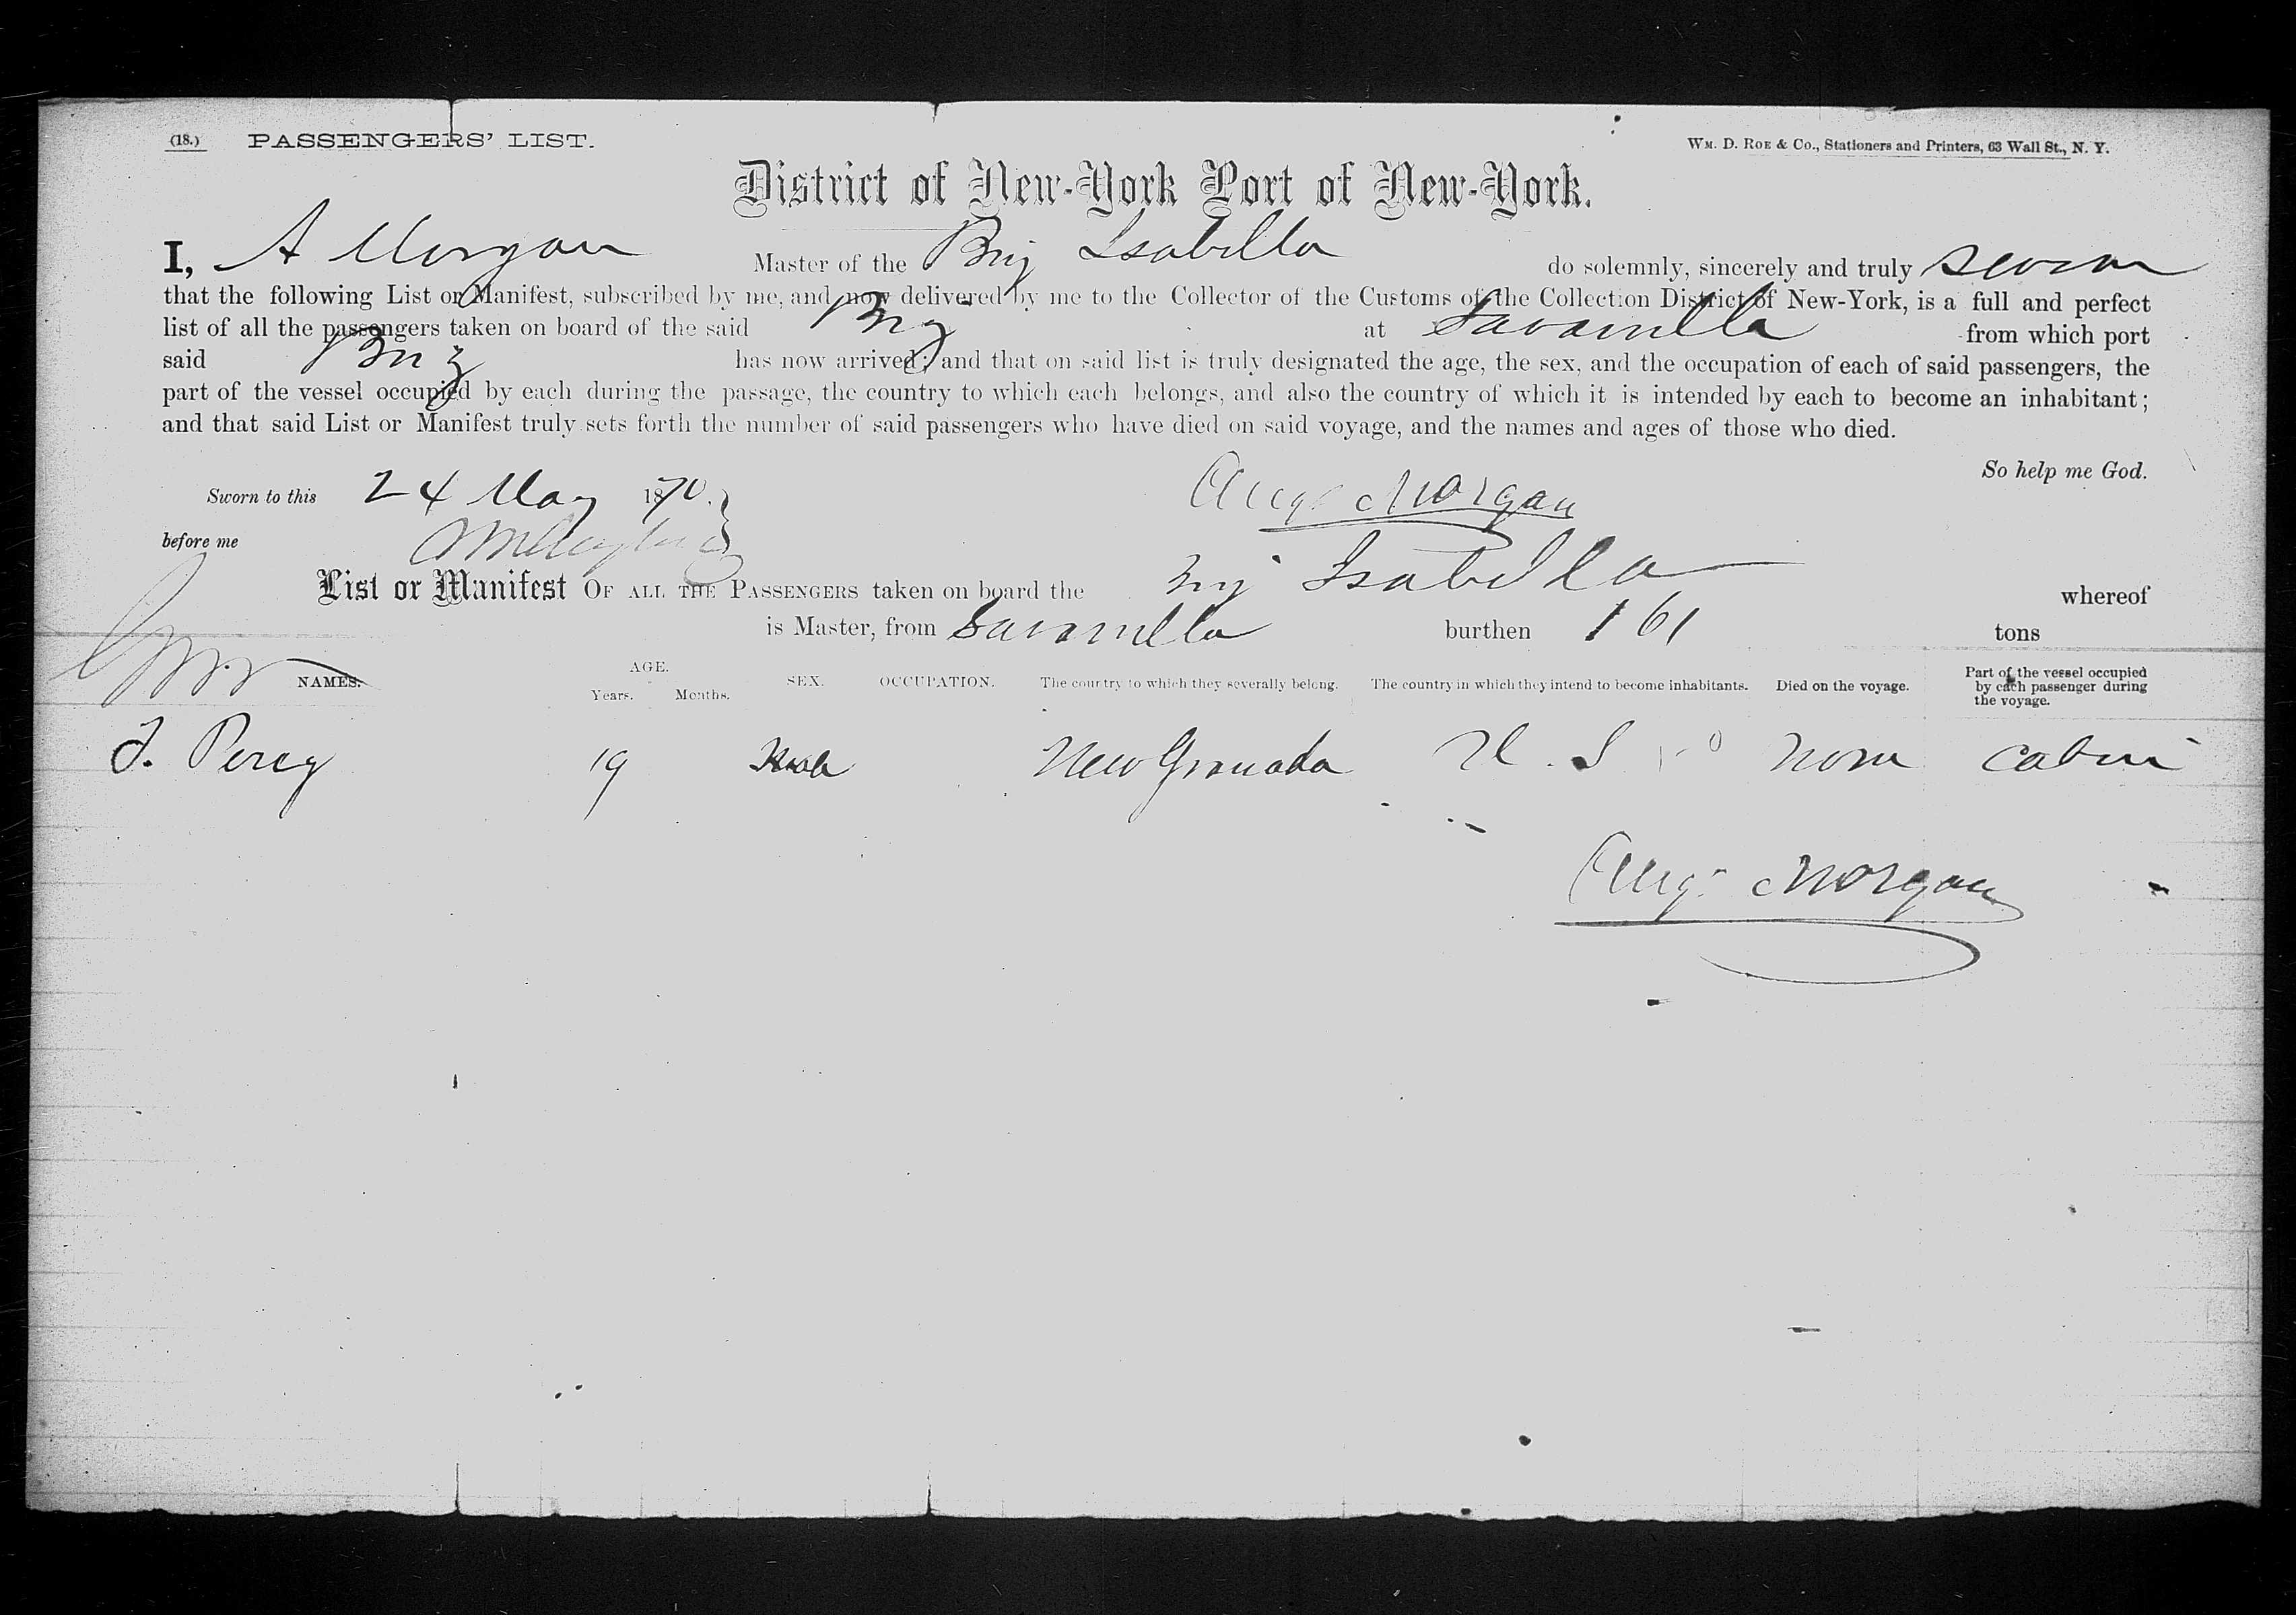 (18.) PASSENGERS' LIST.
Wm. D. Roe & Co., Stationers and Printers, 63 Wall St., N. Y.
District of New-York Port of New-York.
I, A Morgan Master of the Brig Isabella do solemnly, sincerely and truly swear
that the following List or Manifest, subscribed by me, and now delivered by me to the Collector of the Customs of the Collection District of New-York, is a full and perfect
list of all the passengers taken on board of the said Brig at Savanilla from which port
said Brig has now arrived; and that on said list is truly designated the age, the sex, and the occupation of each of said passengers, the
part of the vessel occupied by each during the passage, the country to which each belongs, and also the country of which it is intended by each to become an inhabitant;
and that said List or Manifest truly sets forth the number of said passengers who have died on said voyage, and the names and ages of those who died.
So help me God.
Sworn to this 24 May 1870.
Augs Morgan
before me
List or Manifest OF ALL THE PASSENGERS taken on board the Brig Isabella whereof
is Master, from Savanilla burthen 161 tons
NAMES. AGE. Years. Months. SEX. OCCUPATION. The country to which they severally belong. The country in which they intend to become inhabitants. Died on the voyage. Part of the vessel occupied by each passenger during the voyage.
J. Percy 19 New Granada U. S none cabin
Augs Morgan